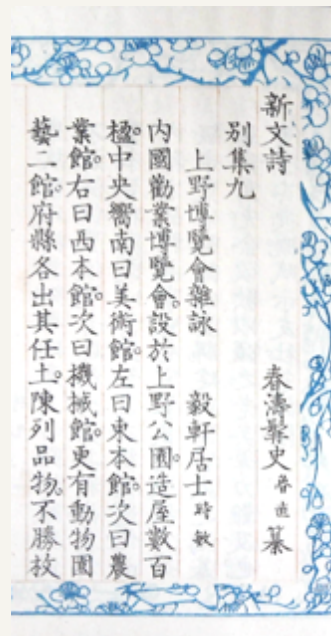 新文詩
別集九 春濤髯史 魯直 纂
上野博覽會雜詠 毅軒居士 時敏
内國勸業博覽會。設於上野公園。造屋數百
楹。中央嚮南曰美術館。左曰東本館。次曰農
業館。右曰西本館。次曰機械館。更有動物園
藝二館。府縣各出其任土。陳列品物。不勝枚